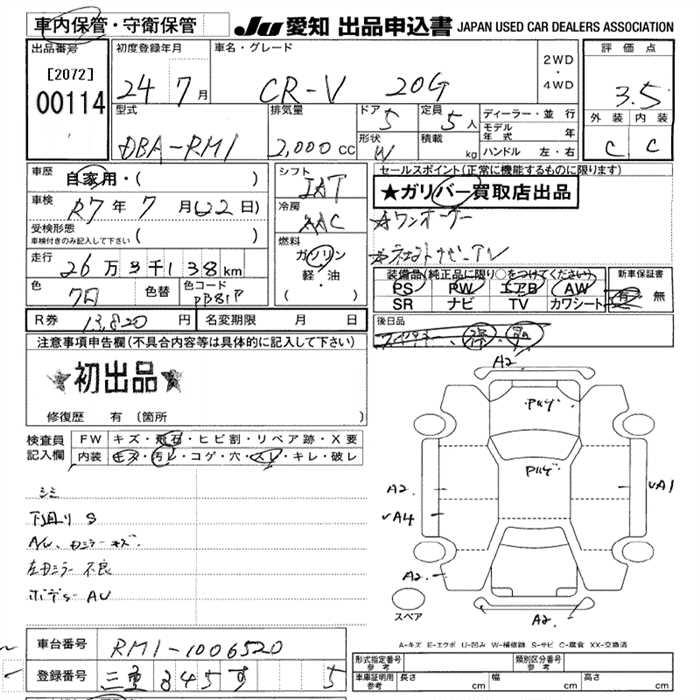 車内保管・守衛保管
JU 愛知 出品申込書 JAPAN USED CAR DEALERS ASSOCIATION
出品番号 初度登録年月 車名・グレード 2WD・4WD 評価点
[2072]
00114 24 7月 CR-V 20G 3.5
型式 排気量 ドア 5 定員 5人 ディーラー・並行 外装 内装
モデル年式 年
DBA-RM1 2,000cc 形状 W 積載 kg ハンドル 左・右 C C
車歴 自家用・( ) シフト IAT セールスポイント(正常に機能するものに限ります)
★ガリバー買取店出品
車検 R7年7月(22日) 冷房 AAC
☆ワンオーナー
受検形態 ( )
車検付きのみ記入して下さい
燃料 ガソリン・軽・油 ( )
走行 26万3千138km
装備品(純正品に限り○をつけてください) 新車保証書
色 クロ 色替 色コード PB81P
PS PW エアB AW 有・無
SR ナビ TV カワシート
R券 13,820円 名変期限 月 日
後日品
注意事項申告欄(不具合内容等は具体的に記入して下さい)
★初出品★
修復歴 有 (箇所
検査員記入欄 FW キズ・飛石・ヒビ割・リペア跡・X要
内装 キズ・汚レ・コゲ・穴・スレ・キレ・破レ
シミ
下廻り S
左ドミラー 不良
ボデーAU
A2
Pルーフ
Pルーフ
A2
UA1
UA4
A2
A2
スペア
A-キズ E-エクボ U-凹み W-補修跡 S-サビ C-腐食 XX-交換済
車台番号 RM1-1006520
登録番号 三重 345 す 5
形式指定番号 参考 類別区分番号 参考
車庫証明用 参考 長さ cm 幅 cm 高さ cm